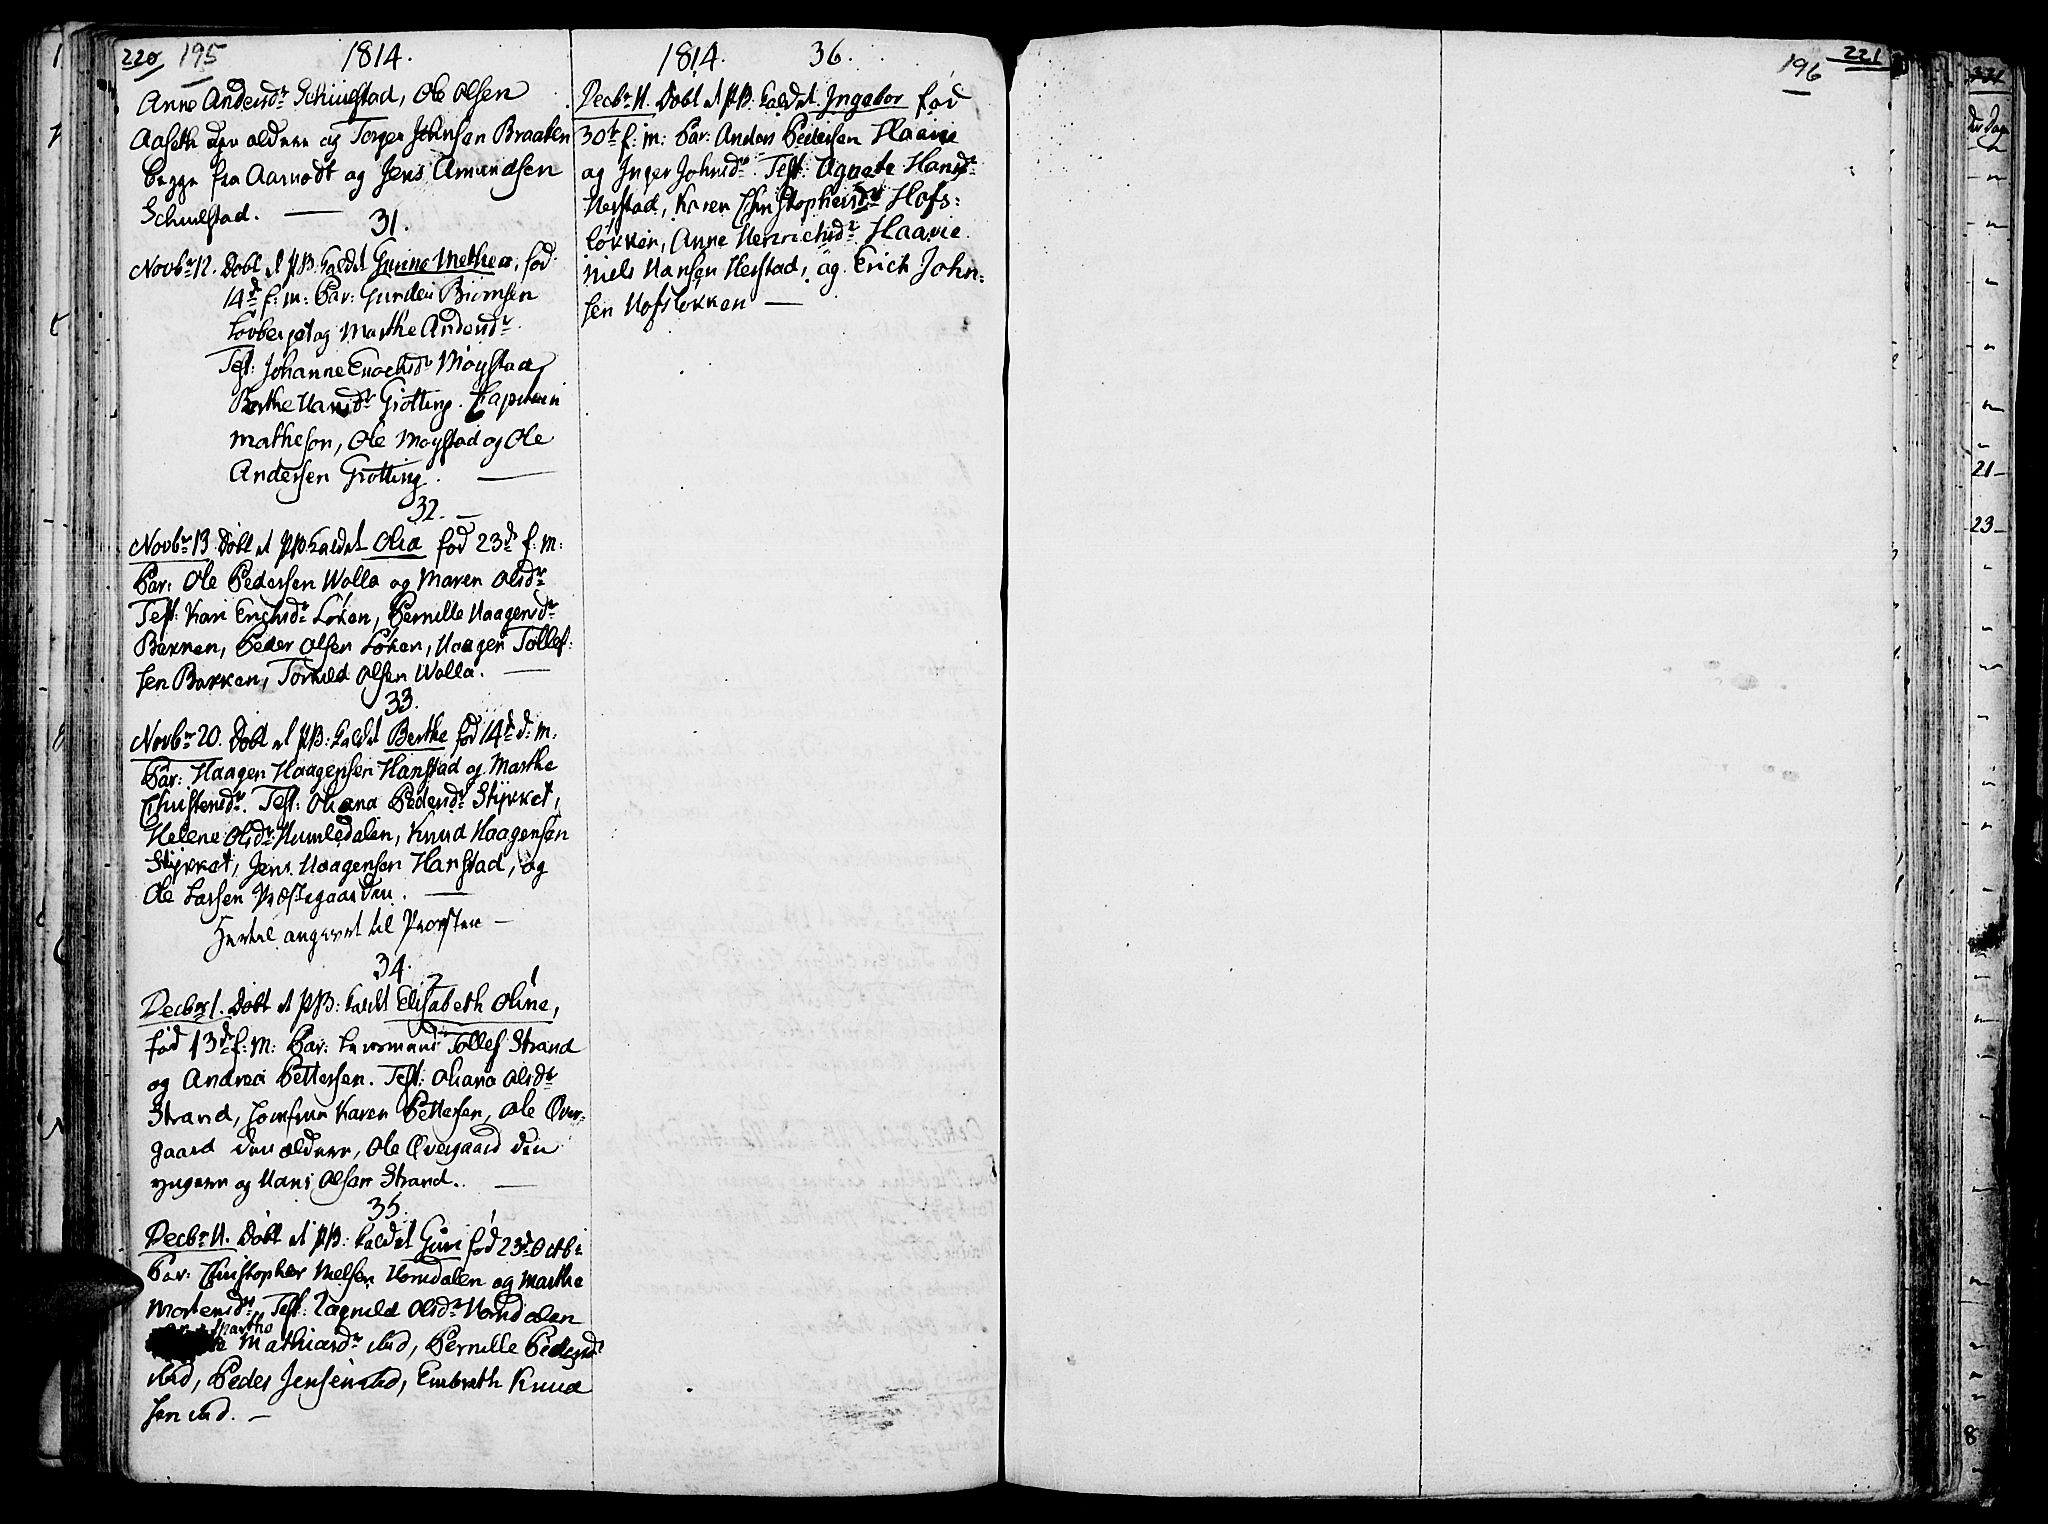 220 195 1814.
Anne Andersdr Schiulstad, Ole Olsen
Aaseth den ældere og Torger Johnsen Braaten
begge fra Aamodt og Jens Amundsen
Schiulstad. —
31.
Novbr 12. Døbt et PB: kaldet Gunne Mathea, fød
14d f: m: Par: Gunder Biørnsen
Lovberget og Marthe Andersdr.
Test: Johanne Enochsdr Møystad,
Berthe Hansdr Grøtting. Capitain
Matheson, Ole Møystad og Ole
Andersen Grøtting. —
32. —
Novbr 13. Døbt et PB. kaldet Olia fød 23d f: m:
Par: Ole Pedersen Wolla og Maren Olsdr
Test: Kari Erichsdr Løken, Pernille Haagensdr
Bakken, Peder Olsen Løken, Haagen Tollef:
sen Bakken, Torkild Olsen Wolla. —
33.
Novbr 20. Døbt et PB: kaldet Berthe fød 14d d: m:
Par: Haagen Haagensen Hanstad og Marthe
Christensdr. Test: Oliana Pedersdr Stykket,
Helene Olsdr Humledalen, Knud Haagensen
Stykket, Jens Haagensen Hanstad, og
Ole Larsen Præstegaarden. —
Hertil angivet til Provsten —
34.
Decbr 1. Døbt et PB: kaldt Elisabeth Oline,
fød 13d f: M: Par: Tollef Strand
og Andrea Pettersen. Test: Oliana Olsdr
Strand, Jomfrue Karen Pettersen, Ole Over-
gaard den ældere, Ole Øvergaard den
yngere og Hans Olsen Strand. —
35.
Decbr 11. Døbt et PB: kaldet Guri fød 23d Octbr
Par: Christopher Nielsen Horndalen og Marthe
Mortensdr. Test: Ragnild Olsdr Horndalen
Marthe
Mathiasdr ibid, Pernille Pedersdr
ibid, Peder Jensen ibid, Embreth Knud
sen ibid. —
1814. 36.
Decbr 11. Døbt et PB: kaldet Ingebor fød
30te f: m: Par: Anders Pedersen Haavie
og Inger Johnsdr. Test: Agnete Hansdr
Herstad, Karen Christophersdr Hofs:
løkken, Anne Henrichsdr Haavie.
Niels Hansen Herstad, og Erich John:
sen Hofsløkken —
196 221
21
23
8